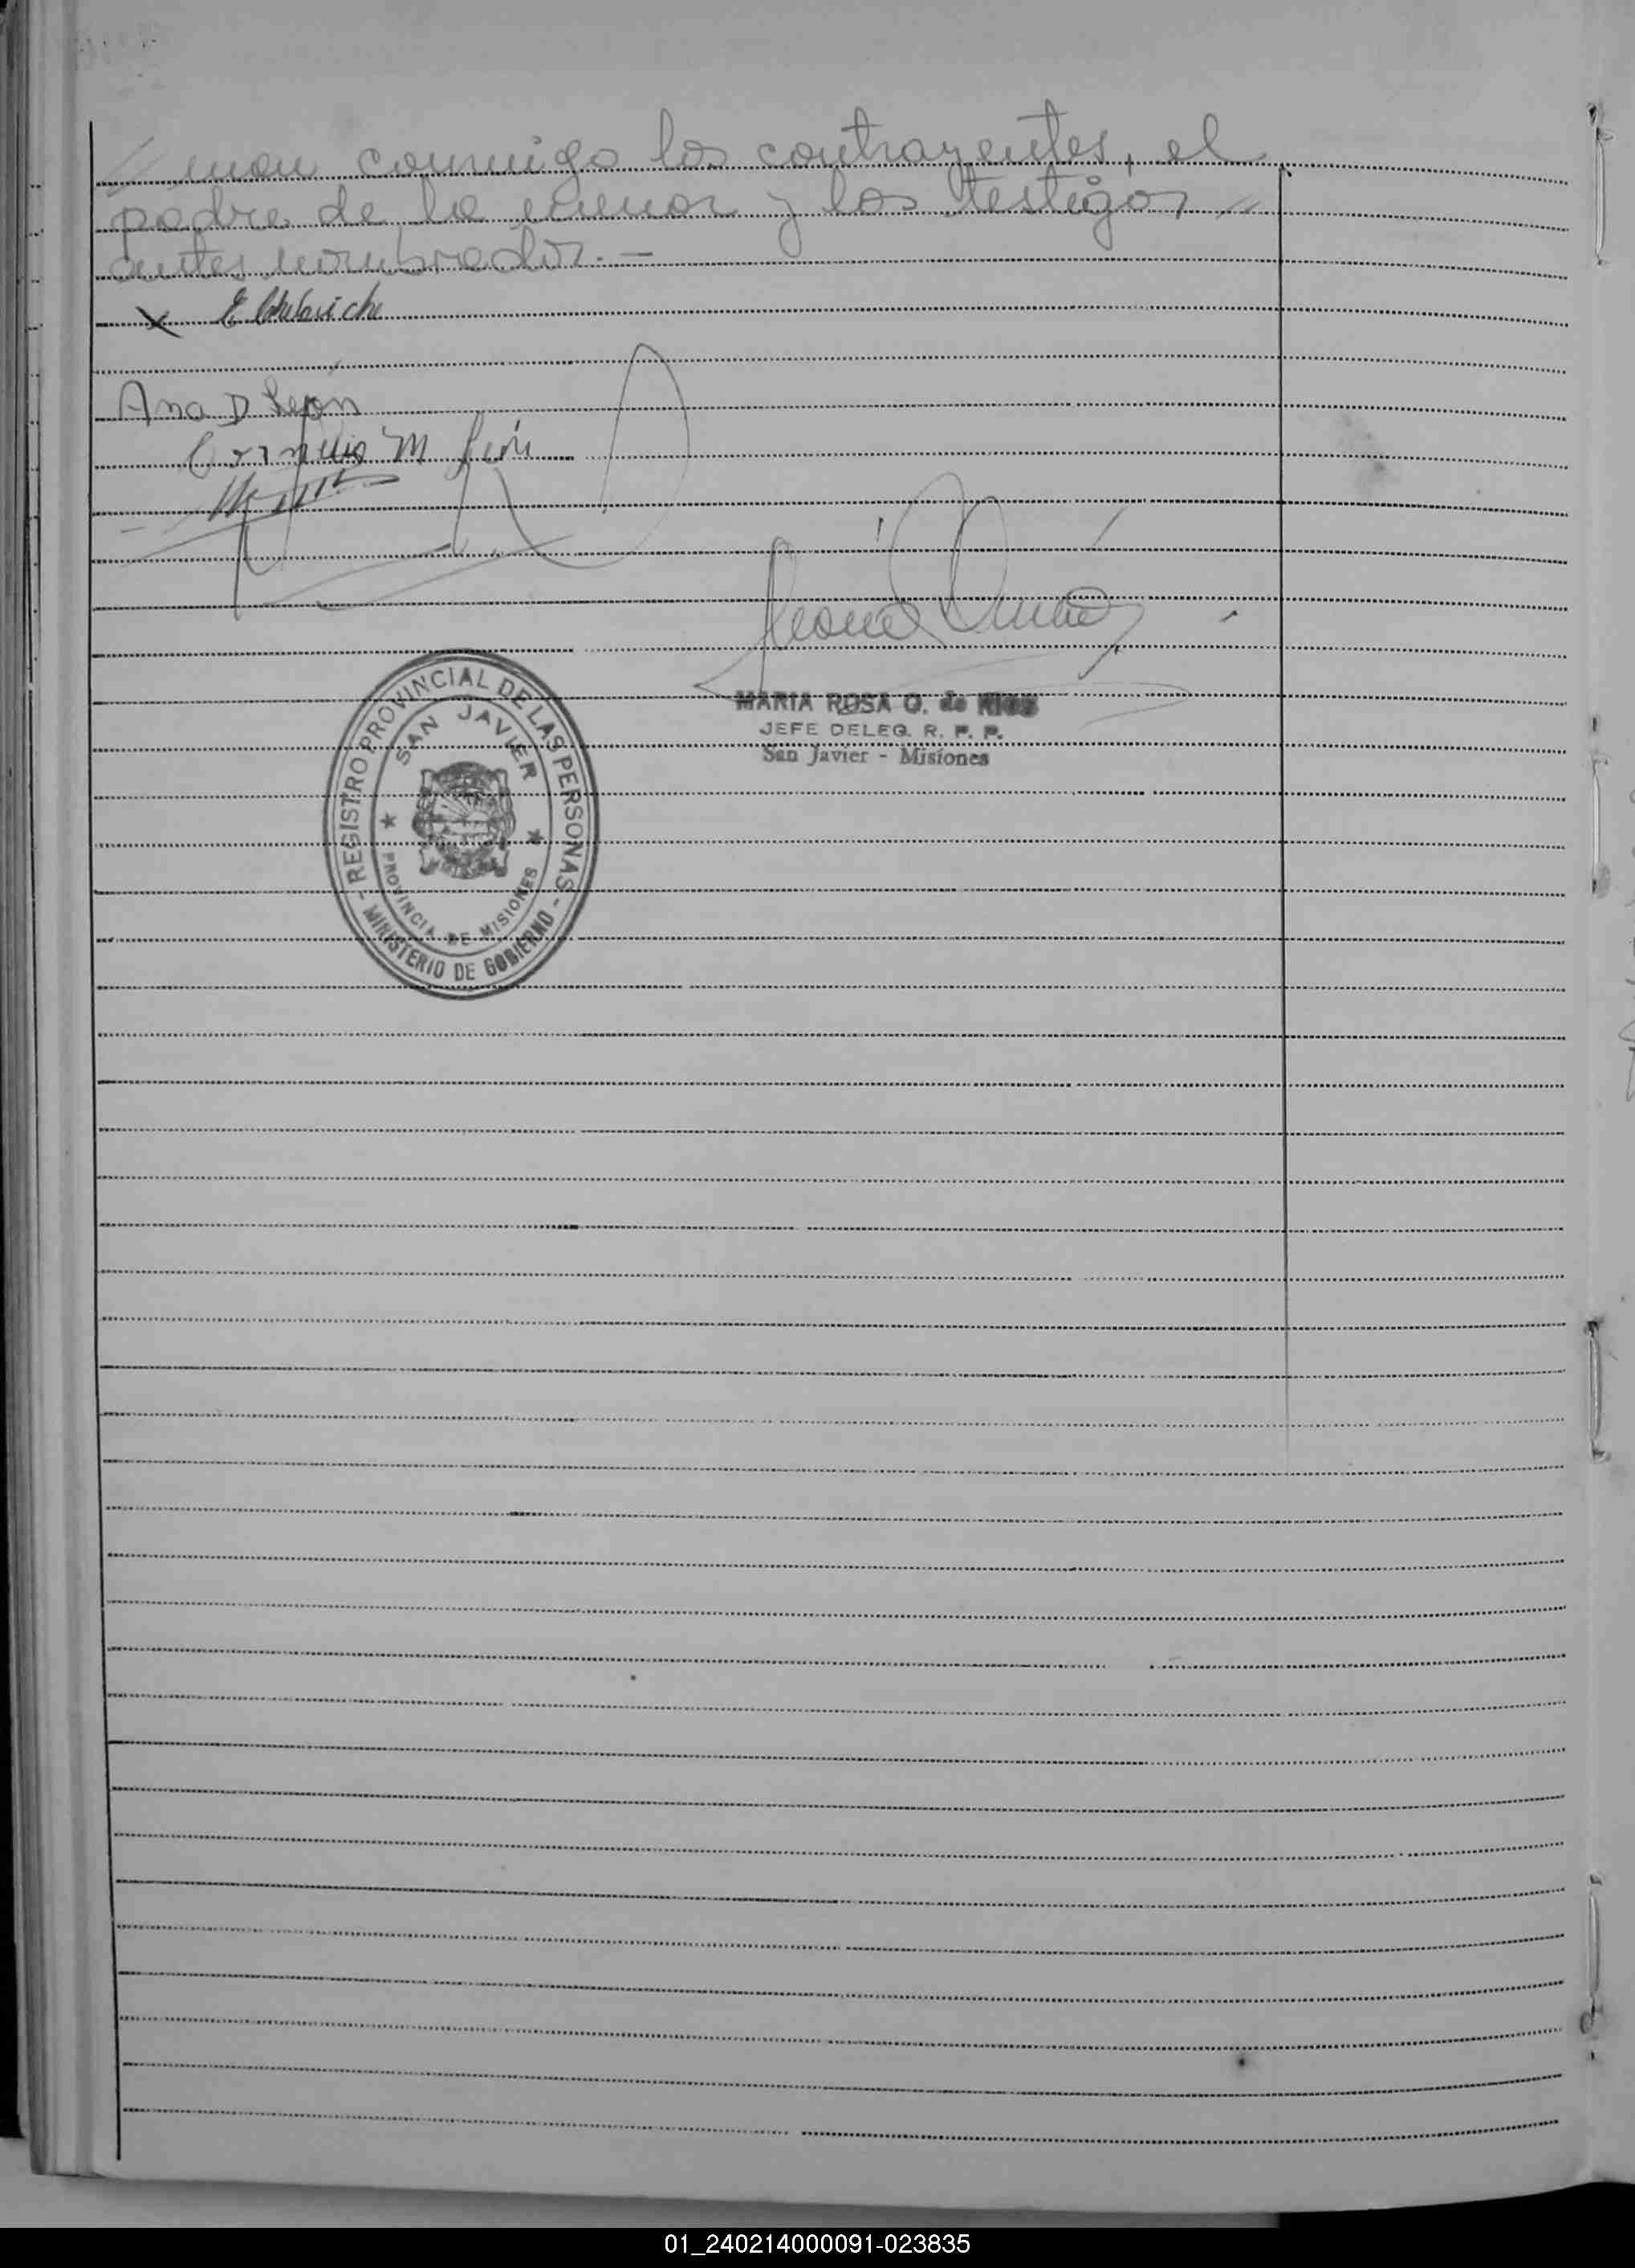 // man conmigo los contrayentes, el
padre de la menor y los testigos //
antes nombrados. —
x E
Ana D León
Cornelio M León
MARIA ROSA O. de RIOS
JEFE DELEG. R. P. P.
San Javier - Misiones
- REGISTRO PROVINCIAL DE LAS PERSONAS -
MINISTERIO DE GOBIERNO
SAN JAVIER
PROVINCIA DE MISIONES
01_240214000091-023835